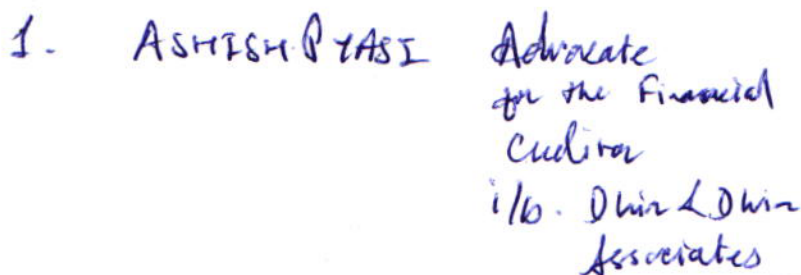 1. ASHISH PYASI Advocate
for the Financial
Creditor
i/b. Dhir & Dhir
Associates